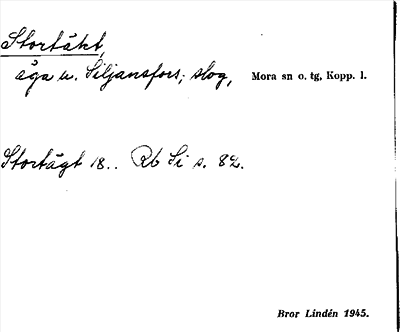 Stortäkt,
äga u. Siljansfors; skog, Mora sn o. tg, Kopp. l.
Stortägt 18.. Rb Si s. 82.
Bror Lindén 1945.